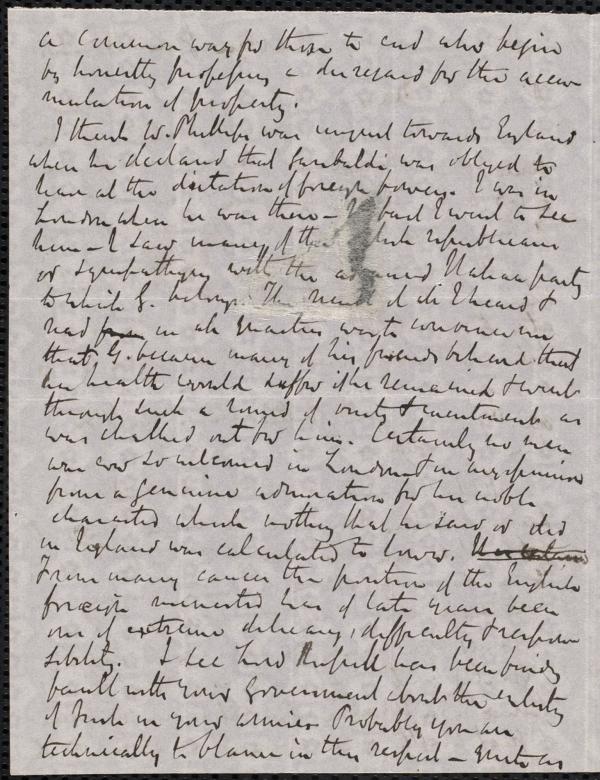 a common way for those to end who begin
by honestly professing a disregard for the accu-
mulation of property.
I think W. Phillips was unjust towards England
when he declared that Garibaldi was obliged to
leave at the dictation of foreign powers. I was in
London when he was there - I went to see
him - I saw many of the republicans
or sympathizers with the advanced Italian party
to which G. belongs. The result of all I heard &
read in all quarters was to convince me
that G. because many of his friends believed that
his health would suffer if he remained & went
through such a round of visits & excitement as
was chalked out for him. Certainly no man
was ever so welcomed in London & in my opinion
from a genuine admiration for his noble
character which nothing that he said or did
in England was calculated to lower.
From many causes the position of the English
foreign minister has of late years been
one of extreme delicacy, difficulty & respon-
sibility. I see Lord Russell has been finding
fault with your Government about the enlisting
of Irish in your armies. Probably you are
technically to blame in this respect - quite as